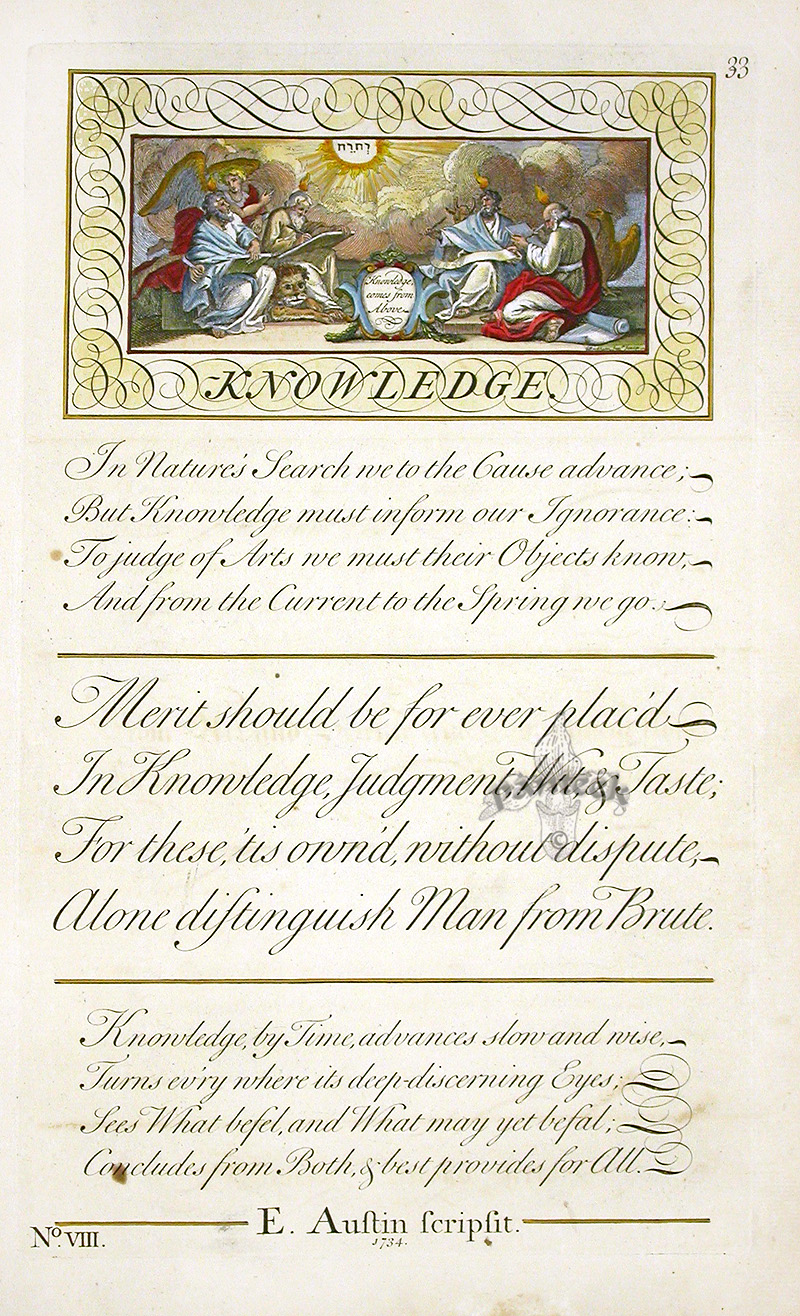 33
Knowledge
comes from
Above
KNOWLEDGE.
In Nature's Search we to the Cause advance;
But Knowledge must inform our Ignorance:
To judge of Arts we must their Objects know,
And from the Current to the Spring we go.
Merit should be for ever plac'd
In Knowledge, Judgment, Wit, & Taste;
For these, 'tis own'd, without dispute,
Alone diſtinguish Man from Brute.
Knowledge, by Time, advances slow and wise,
Turns ev'ry where its deep-discerning Eyes;
Sees What befel, and What may yet befal;
Concludes from Both, & best provides for All.
E. Auſtin ſcripſit.
1734.
No. VIII.